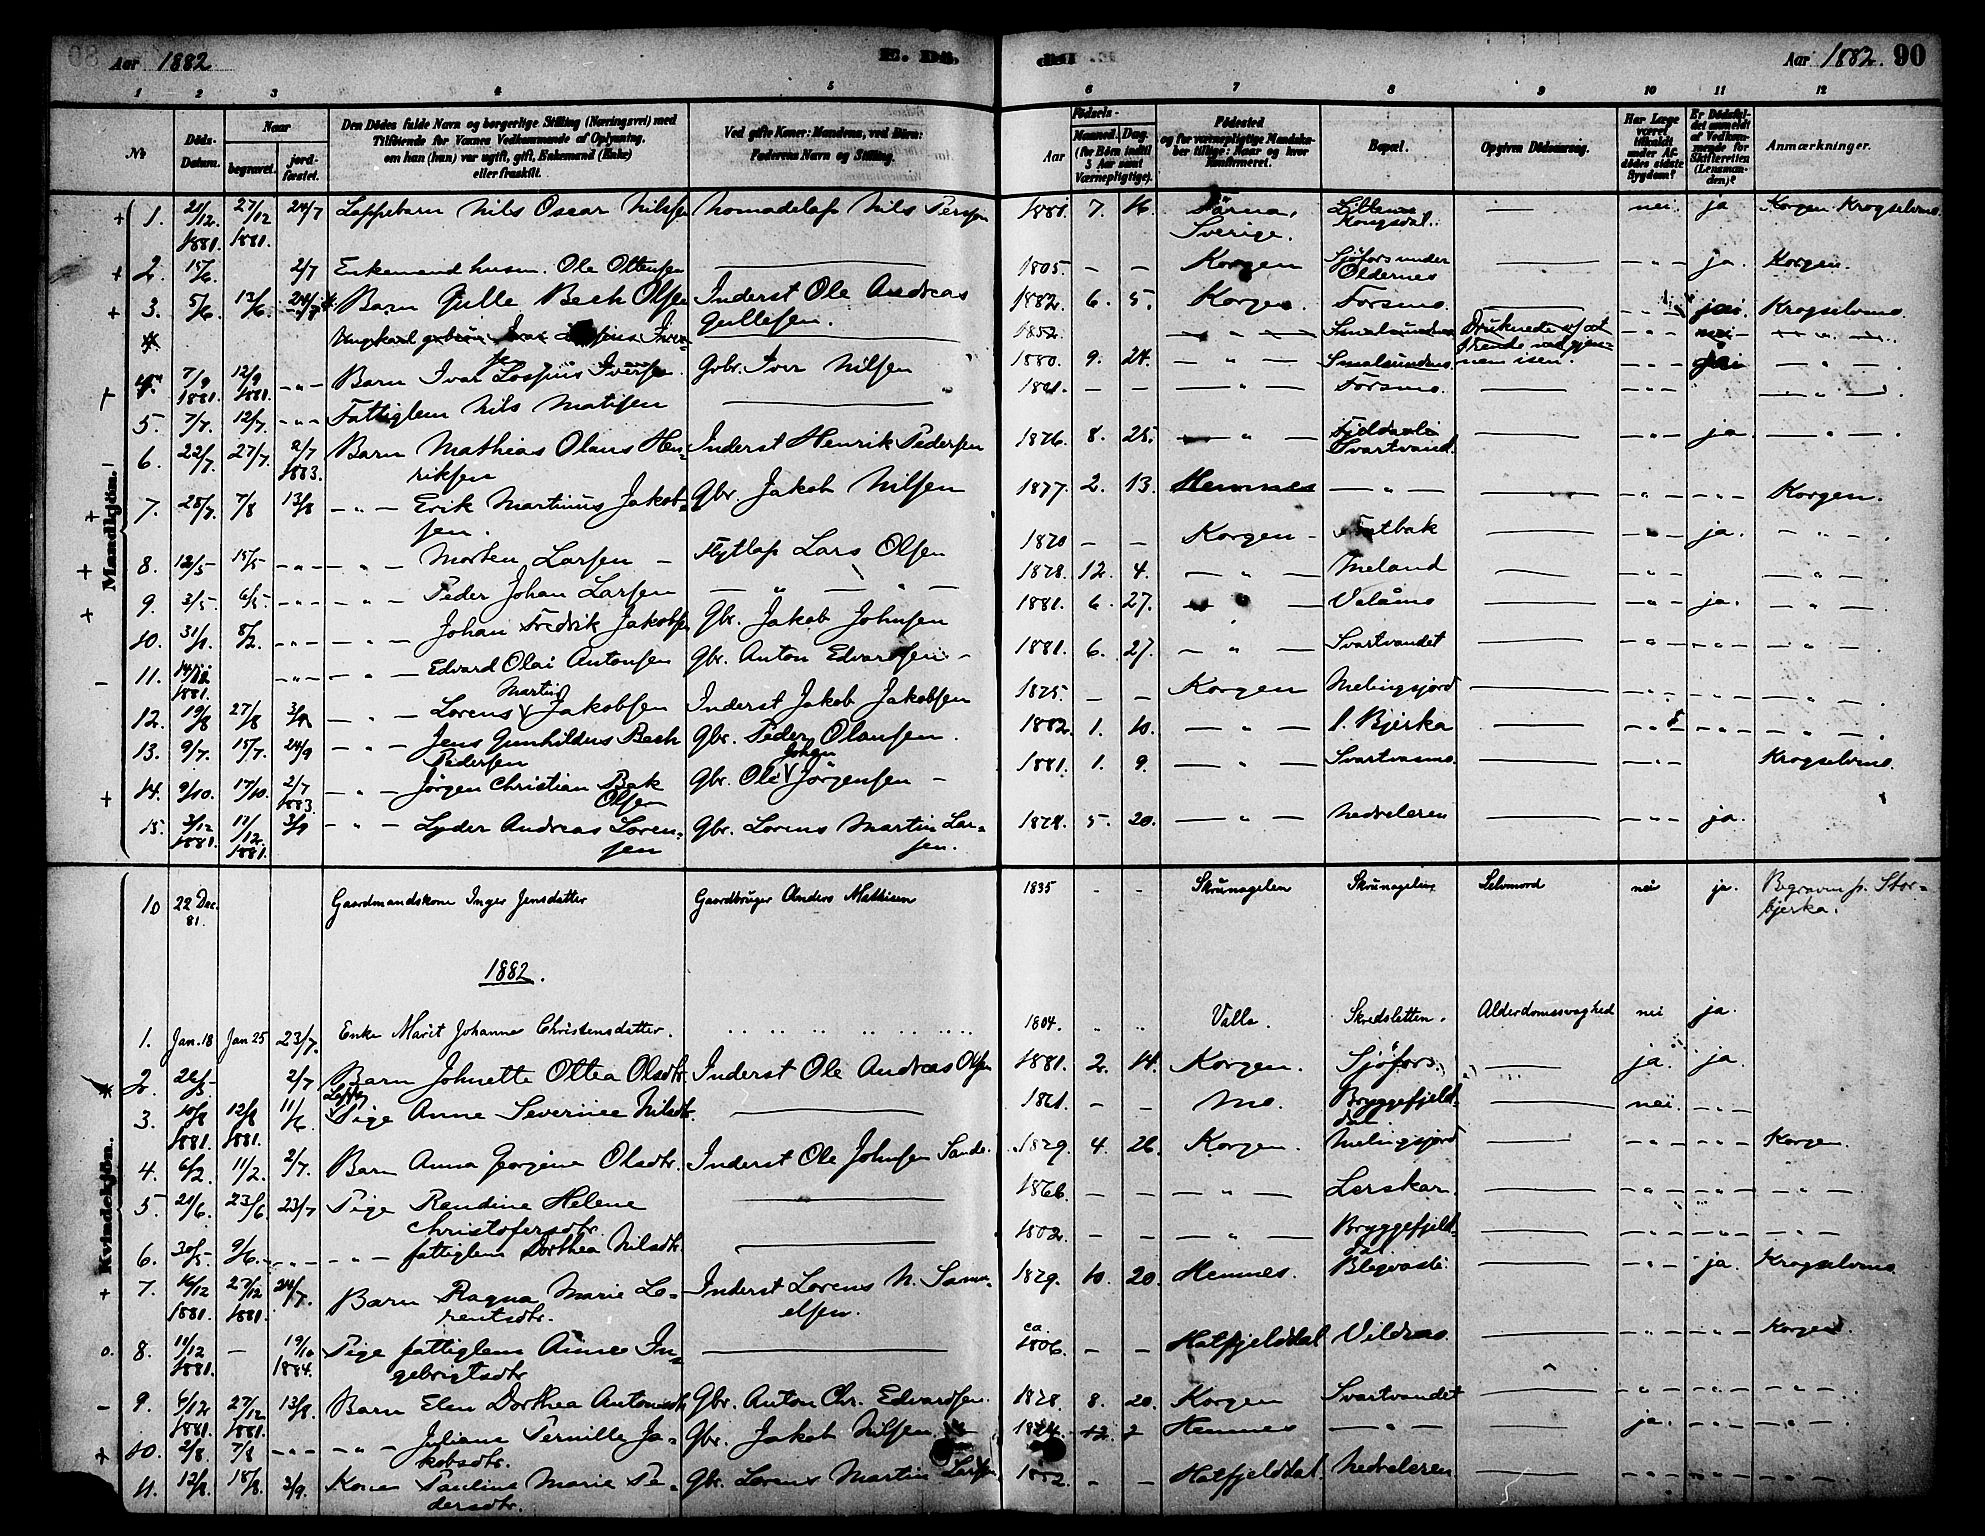 Aar 1882 E. Dö.
Aar 1882. 90
1 2 3 4 5 6 7 8 9 10 11 12
No
Döds-Datum.
Naar
begravet.
jord-fæstet.
Den Dödes fulde Navn og borgerlige Stilling (Næringsvei) med
Tilföiende for Voxnes Vedkommende af Oplysning,
om han (hun) var ugift, gift, Enkemand (Enke)
eller fraskilt.
Ved gifte Koner: Mandens, ved Börn:
Faderens Navn og Stilling.
Födsels-
Aar
Maaned. Dag.
(for Börn indtil 3 Aar samt Værnepligtige).
Födested
og for værnepligtige Mandskaber tillige: Naar og hvor Konfirmeret.
Bopæl.
Opgiven Dödsaarsag.
Har Læge været tilkaldt under Afdödes sidste Sygdom?
Er Dödsfaldet anmeldt af Vedkommende for Skifteretten (Lensmanden)?
Anmærkninger.
Mandkjön.
1. 21/12 1881. 27/12 1881. 24/7 Lappebarn Nils Oscar Nilsen Nomadelap Nils Persen 1881. 7. 16. Tärna, Sverige. Kongsdal. — nei ja Korgen Krogselvmo.
2. 15/6 2/7 Enkemand husm. Ole Ottensen — 1805. - - Korgen Sjöfors under Oldernes — - " - ja. Korgen.
3. 5/6 13/6 24/7 Barn Gulle Bech Olsen Inderst Ole Andreas Gullesen. 1882. 6. 5. Korgen. Forsmo. — - " - ja Krogselvmo
1852 — " — Smalsundmo Druknede nei - " -
4. 7/9 1881. 12/9 1881. - " - Barn Ivar Losius Iversen. Gbr. Iver Nilsen 1880. 9. 24. — " — Smalsundmo nem isen - " - - " -
5. 7/7. 12/7. - " - Fattiglem Nils Matisen — 1821. - - — " — Forsmo. — - " - - " -
6. 22/7. 27/7. 2/7 1883. Barn Mathias Olaus Henriksen Inderst Henrik Pedersen 1876. 8. 25. — " — Svartvand. — - " - ja. — " —
7. 28/7 7/8 13/8 - " - Erik Martinus Jakobsen. Gbr. Jakob Nilsen 1877. 2. 13. Hemnes — " — — - " - - " - Korgen.
8. 12/5 15/5 - " - - " - Morten Larsen — Flytlap Lars Olsen 1870 - - Korgen — — - " - ja. - " -
9. 3/5. 6/5. - " - - " - Peder Johan Larsen — " — " — 1878. 12. 4. — " — Meland — - " - - " - - " -
10. 31/1. 8/2. - " - - " - Johan Fredrik Jakobsen Gbr. Jakob Johnsen 1881. 6. 27. — " — Valåmo — - " - ja. - " -
11. 1881. - " - - " - Edvard Olai Antonsen Gbr. Anton Edvardsen — 1881. 6. 27. — " — Svartvandet — - " - - " - - " -
12. 19/8 27/8 3/9 - " - Lorens Martin Jakobsen Inderst Jakob Jakobsen 1875. - - Korgen Melingsjord — - " - - " - - " -
13. 9/7. 15/7. 24/9 - " - Jens Gunhildus Bech Pedersen Gbr. Peder Olausen. 1882. 1. 10. — " — l. Bjerka — - " - - " - - " -
14. 9/10. 17/10. 2/7 1883. - " - Jörgen Christian Bak Olsen Gbr. Ole Johan Jörgensen — 1881. 1. 9. — " — Svartvasmo — - " - Krogselvmo.
15. 3/12 1881. 11/12 1881. 3/9 - " - Lyder Andreas Lorensen Gbr. Lorens Martin Larsen. 1874. 5. 20. — " — Nedreleren — - " - ja.
Kvindekjön.
10 22 Dec. 81. Gaardmandskone Inger Jensdatter Gaardbruger Anders Mathisen 1835 - - Skrunagelen Skrunagelen Selvmord nei ja. Begraven p. Storbjerka.
1882.
1. Jan. 18 Jan 25 23/7. Enke Marit Johanne Christensdatter. 1804. " " Valla. Skredsletten. Alderdomssvaghed nei ja.
2. 2/7 Barn Johnette Ottea Olsdtr. Inderst Ole Andreas Olsen 1881. 2. 14. Korgen. Sjöfors. — ja. ja.
3. 10/8 1881. 12/8 1881. 11/6 Lappe Pige Anne Severine Nilsdtr. — 1821. - - Mo. Bryggefjelddal. — nei. - " -
4. 6/2. 11/2. 2/7. Barn Anna Georgine Olsdtr. Inderst Ole Johnsen Sande. 1879. 4. 26. Korgen. Melingsjord — - " - - " - Korgen.
5. 21/6 23/6 23/7 Pige Rendine Helene Christofersdtr. — 1866. - - — " — Lerskar. — - " - - " - — " —
6. 30/5 9/6. - " - - " - fattiglem Dorthea Nilsdtr. — 1802. - - — " — Bryggefjelddal — - " - - " - — " —
7. 16/12 1881. 27/12 1881. 24/7. Barn Ragna Marie Lorentsdtr. Inderst Lorens N. Samuelsen. 1879. 10. 20. Hemnes. — - " - ja. Krogselvmo
8. 11/12 1881. — 19/10 1884. Pige fattiglem Anne Ingebrigtsdtr — ca 1806. - - Hatfjelddal Vildmo. — - " - - " - Korgen.
9. 4/12 1881. 27/12 1881. 13/8. Barn Elen Dorthea Antonsdtr Gbr. Anton Chr. Edvardsen. 1878. 8. 20. Korgen Svartvandet — - " - - " - - " -
10. 2/8. 7/8 - " - - " - Juliane Pernille Jakobsdtr. Gbr. Jakob Nilsen. 12. 2 Hemnes — " — — ja. - " - - " -
11. 12/8. 18/8. 3/9. Kone Pauline Marie Pedersdtr. Gbr. Lorens Martin Larsen 1852. - - Hatfjelddal. Nedreleren. — - " - - " - - " -